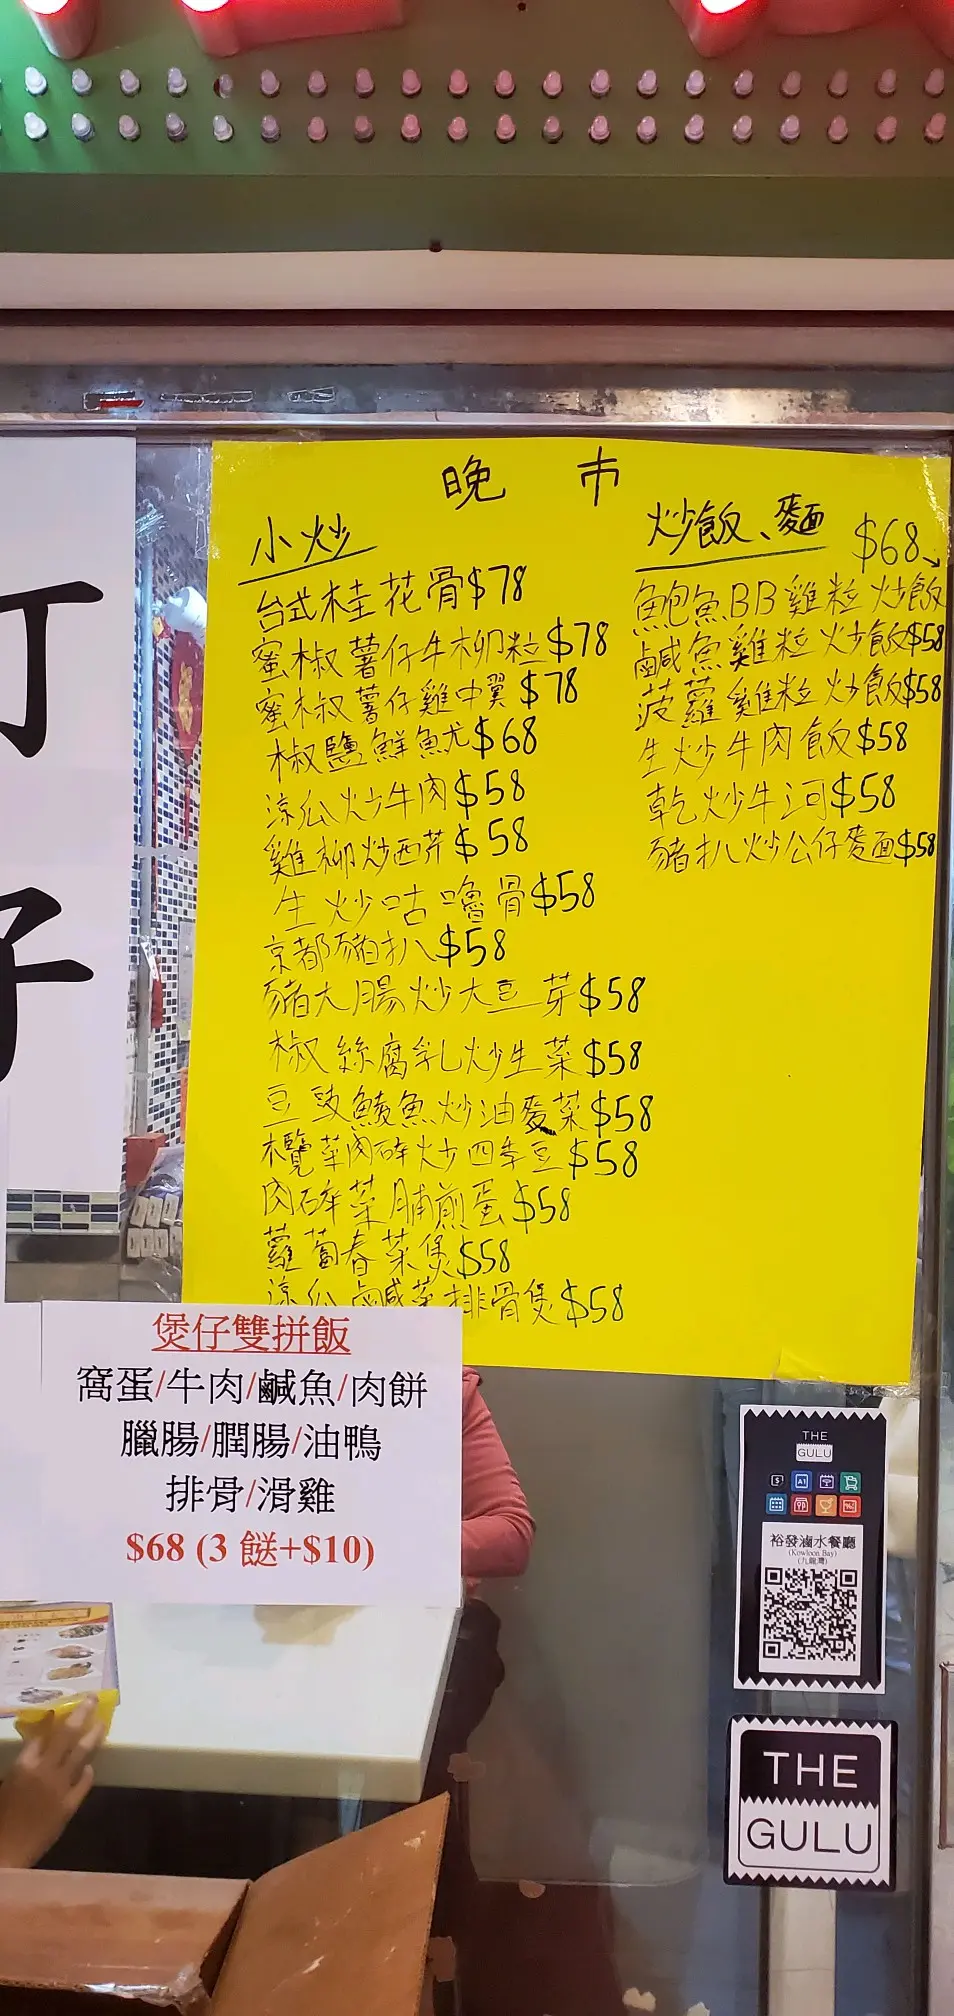 仔
晚市
小炒
台式桂花骨$78
蜜椒薯仔牛柳粒$78
蜜椒薯仔雞中翼$78
椒鹽鮮魷$68
涼瓜炒牛肉$58
雞柳炒西芹$58
生炒咕嚕骨$58
京都豬扒$58
豬大腸炒大豆芽$58
椒絲腐乳炒生菜$58
豆豉鯪魚炒油麥菜$58
欖菜肉碎炒四季豆$58
肉碎菜脯煎蛋$58
蘿蔔春菜煲$58
涼瓜鹹菜排骨煲$58
炒飯、麵
$68
鮑魚BB雞粒炒飯
鹹魚雞粒炒飯$58
菠蘿雞粒炒飯$58
生炒牛肉飯$58
乾炒牛河$58
豬扒炒公仔麵$58
煲仔雙拼飯
窩蛋/牛肉/鹹魚/肉餅
臘腸/膶腸/油鴨
排骨/滑雞
$68 (3 餸+$10)
THE
GULU
裕發滷水餐廳
(Kowloon Bay)
(九龍灣)
THE
GULU